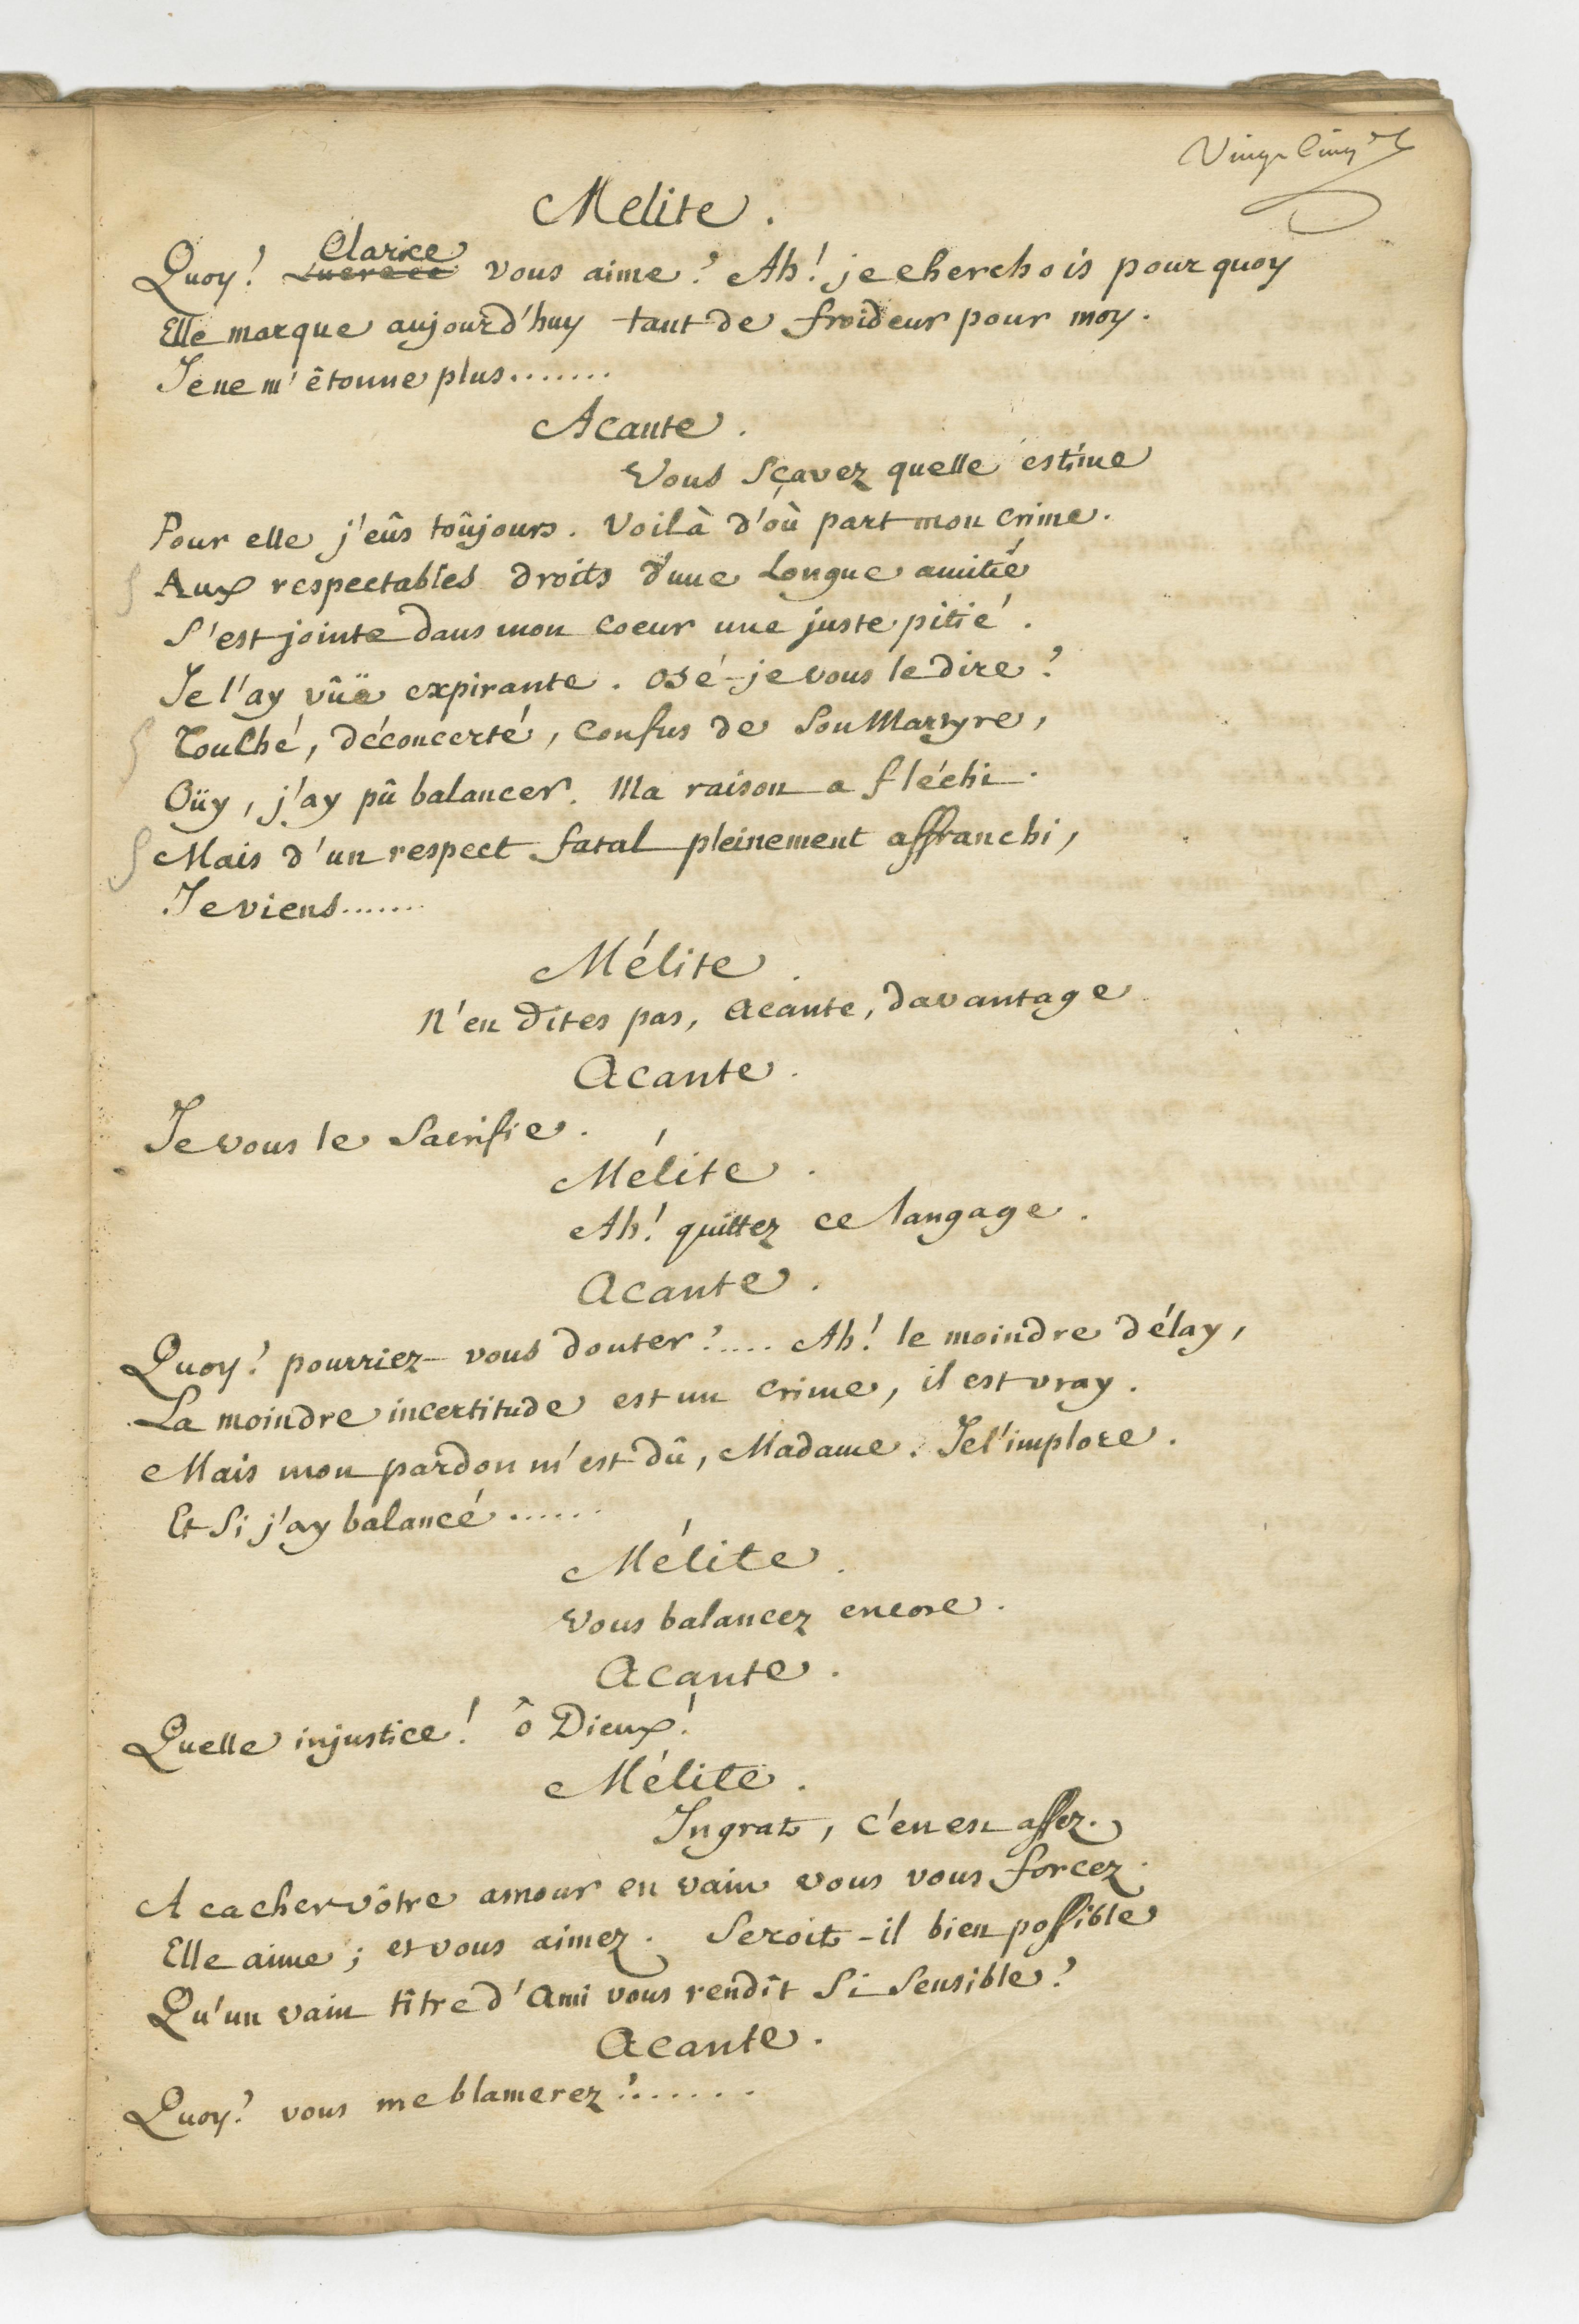 Vingt Cinq
Melite.
Clarice
Quoy? Lucrece vous aime? Ah! je cherchois pourquoy
Elle marque aujourd'huy tant de froideur pour moy.
Je ne m'êtonne plus.......
Acante.
Vous Sçavez quelle estime
Pour elle j'eûs toûjours. Voilà d'où part mon crime.
Aux respectables droits d'une Longue amitié
S'est jointe dans mon coeur une juste pitié.
Je l'ay vûë expirante. Osé-je vous le dire?
Touché, déconcerté, Confus de Son Martyre,
Oüy, j'ay pû balancer. Ma raison a fléchi.
Mais d'un respect fatal pleinement affranchi,
Je viens.......
Mélite.
N'en dites pas, Acante, davantage
Acante.
Je vous le Sacrifie.
Mélite.
Ah! quittez ce langage.
Acante.
Quoy? pourriez-vous douter?.... Ah! le moindre délay,
La moindre incertitude est un crime, il est vray.
Mais mon pardon m'est dû, Madame. Je l'implore.
Et Si j'ay balancé......
Mélite.
Vous balancez encore.
Acante.
Quelle injustice! ô Dieux!
Mélite.
Ingrat, c'en est assez.
A cacher vôtre amour en vain vous vous forcez.
Elle aime; et vous aimez. Seroit-il bien possible
Qu'un vain tître d'Ami vous rendît Si Sensible?
Acante.
Quoy? vous me blamerez?......